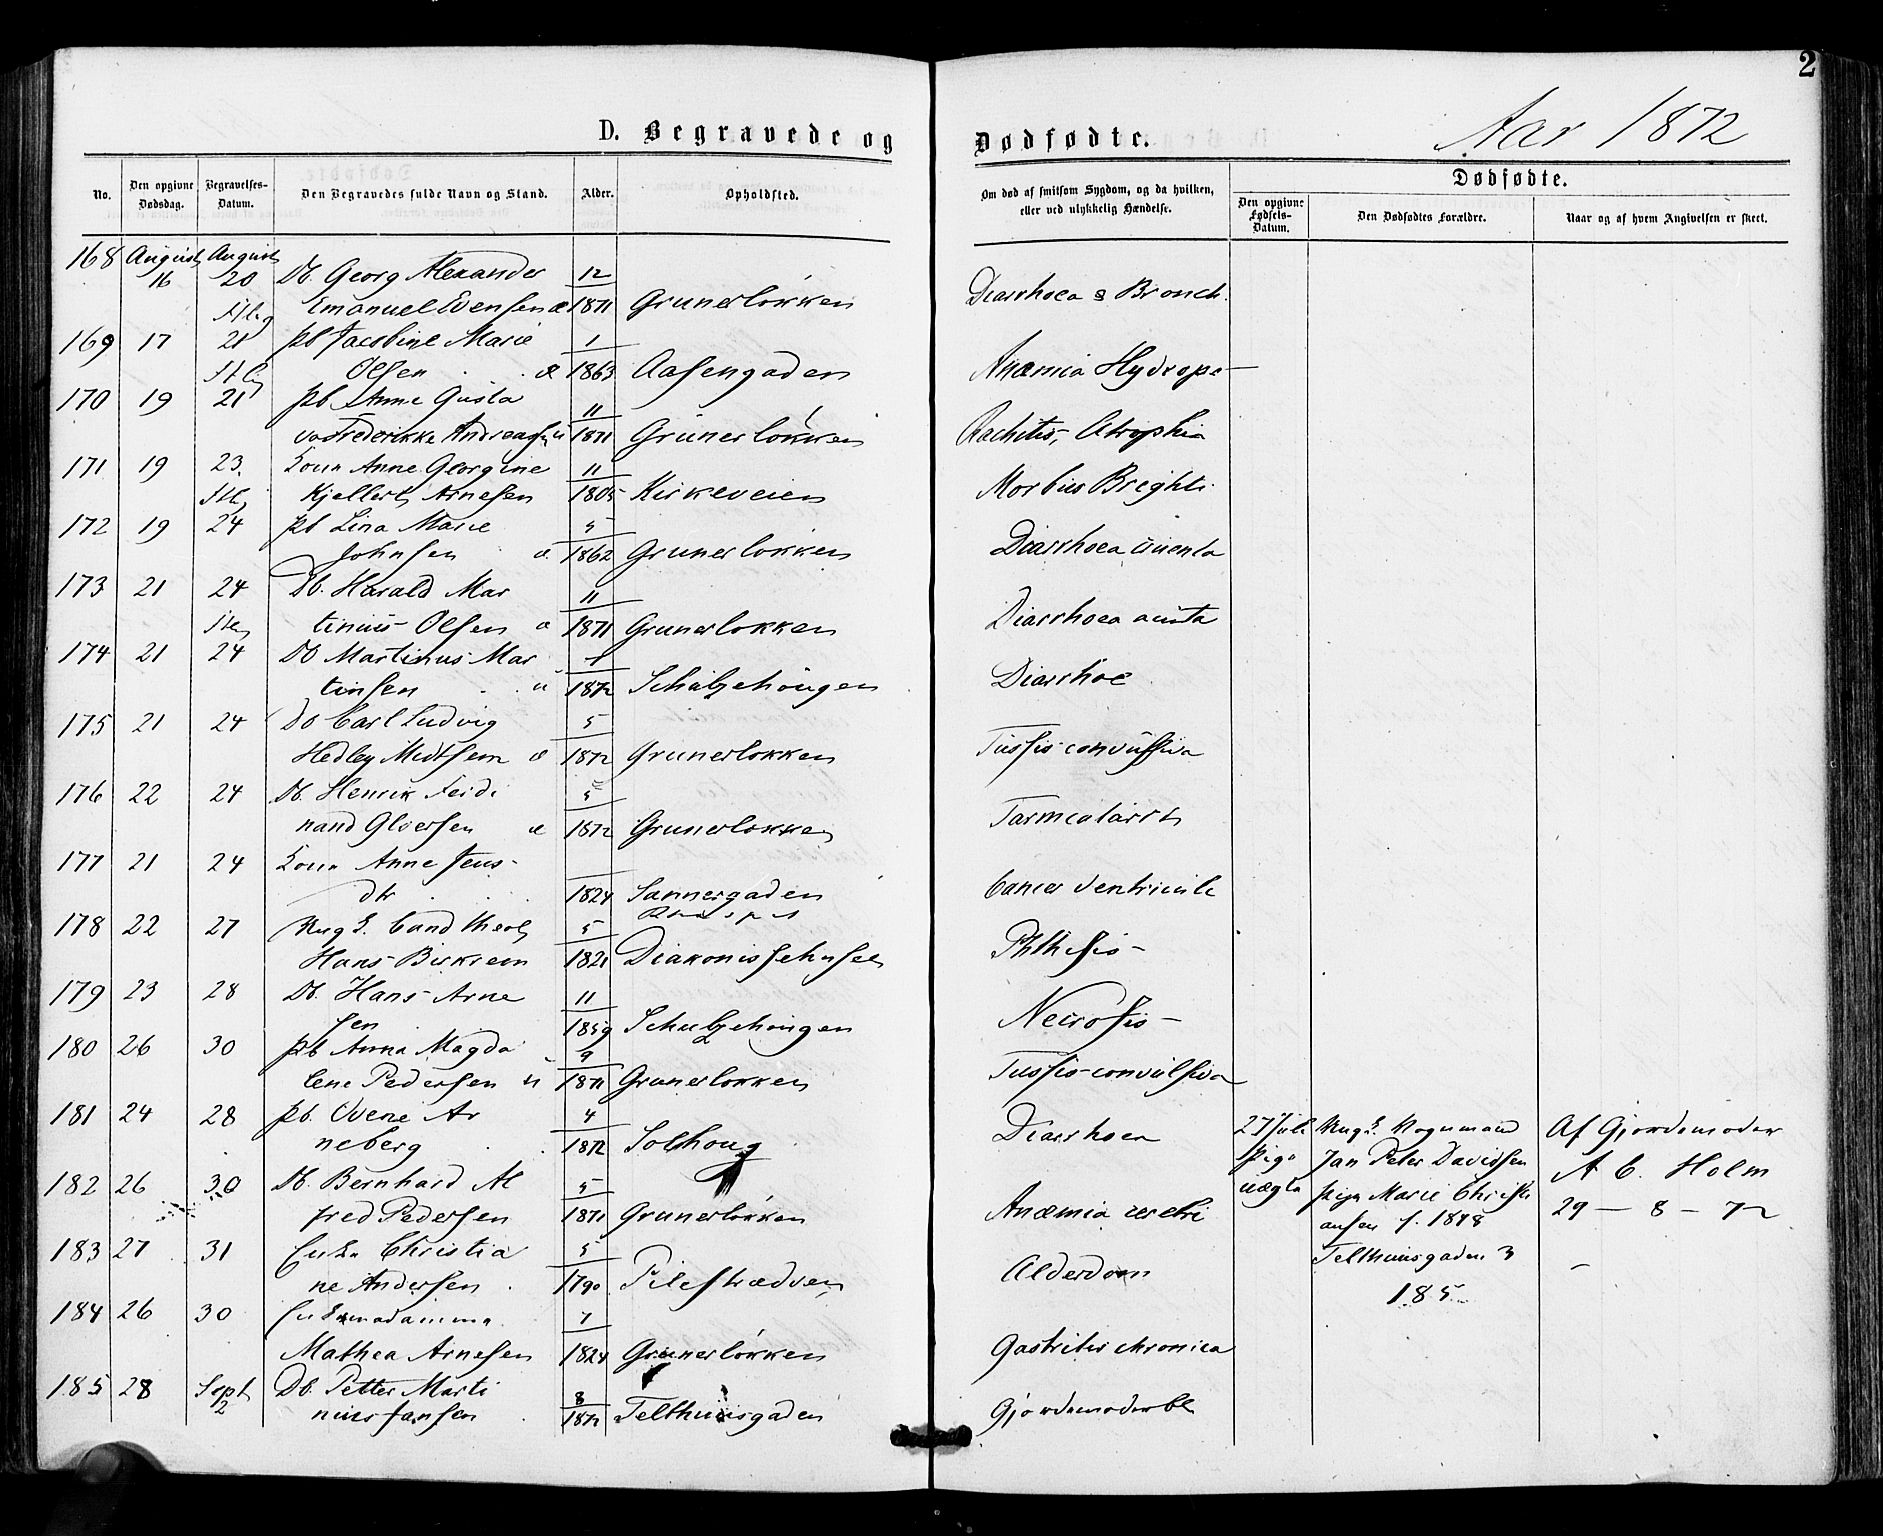 2
D. Begravede og Dødfødte.
Aar 1872
No.
Den opgivne Dødsdag.
Begravelses-Datum.
Den Begravedes fulde Navn og Stand.
Alder.
Opholdsted.
Om død af smitsom Sygdom, og da hvilken, eller ved ulykkelig Hændelse.
Dødfødte.
Den opgivne Fødsels-Datum.
Den Dødfødtes Forældre.
Naar og af hvem Angivelsen er skeet.
168 August August
16 20 Db. Georg Alexander 12
Emanuel Evensen æ 1871 Grunerløkken Diarrhoea & Bronch.
169 17 21 pb Jacobine Marie 1
Olsen æ 1863 Aasengaden Anæmia Hydrops
170 19 21 pb Anne Gusta 11
va Frederikke Andreasen u 1871 Grünerløkken Rachitis, Atrophia
171 19 23. Kone Anne Georgine 11
Kjellert Arnesen 1805 Kirkeveien Morbus Brighti
172 19 24 pb Lina Marie 5
Johnsen æ 1862 Grunerløkken Diarrhoea
173 21 24 Db. Harald Mar 11
tinius Olsen æ 1871 Grunerløkken Diarrhoea acuta
174 21 24 Db Martinus Mar 1
tinsen u 1872 Schulzehougen Diarrhoe
175 21 24 Db Carl Ludvig 5
Hedley æ 1872 Grunerløkken Tussis convulsiva
176 22 24 Db. Henrik Ferdi 5
nand Gloersen æ 1872 Grunerløkken Tarmcatarrh
177 21 24 Kone Anne Jens-
dtr 1824 Sannergaden Cancer Ventriculi
178 22 27 Ung K. Cand theol 5
Hans Birkrem 1821 Diakonissehuset Phthisis
179 23 28 Db. Hans Arne 11
sen 1859 Schulzehougen Necrosis
180 26 30 pb Anna Magda 9
lene Pedersen u 1871 Grunerløkken Tussis convulsiva
181 24 28 pb. Ovene Ar 4
neberg 1872 Solhoug Diarrhoea
182 26 30 Db. Bernhard Al 5
fred Pedersen 1871 Grunerløkken Anæmia cerebri
183 27 31 Enke Christia 5
ne Andersen 1790 Pilestrædven Alderdom
184 26 30 7
Mathea Arnesen 1824 Grünerløkken Gastritis chronica
185 28 Sept 2 Db. Petter Marti 8
nius Jansen 1872 Telthuusgaden Gjordemoder
27 Juli
Pige
uægta
Ungk. Vognmand
Jan Peter Davidsen
pige Marie Christi
ansen f. 1848
Telthuusgaden 3
185
Af Gjordemoder
A C. Holm
29 - 8 - 72